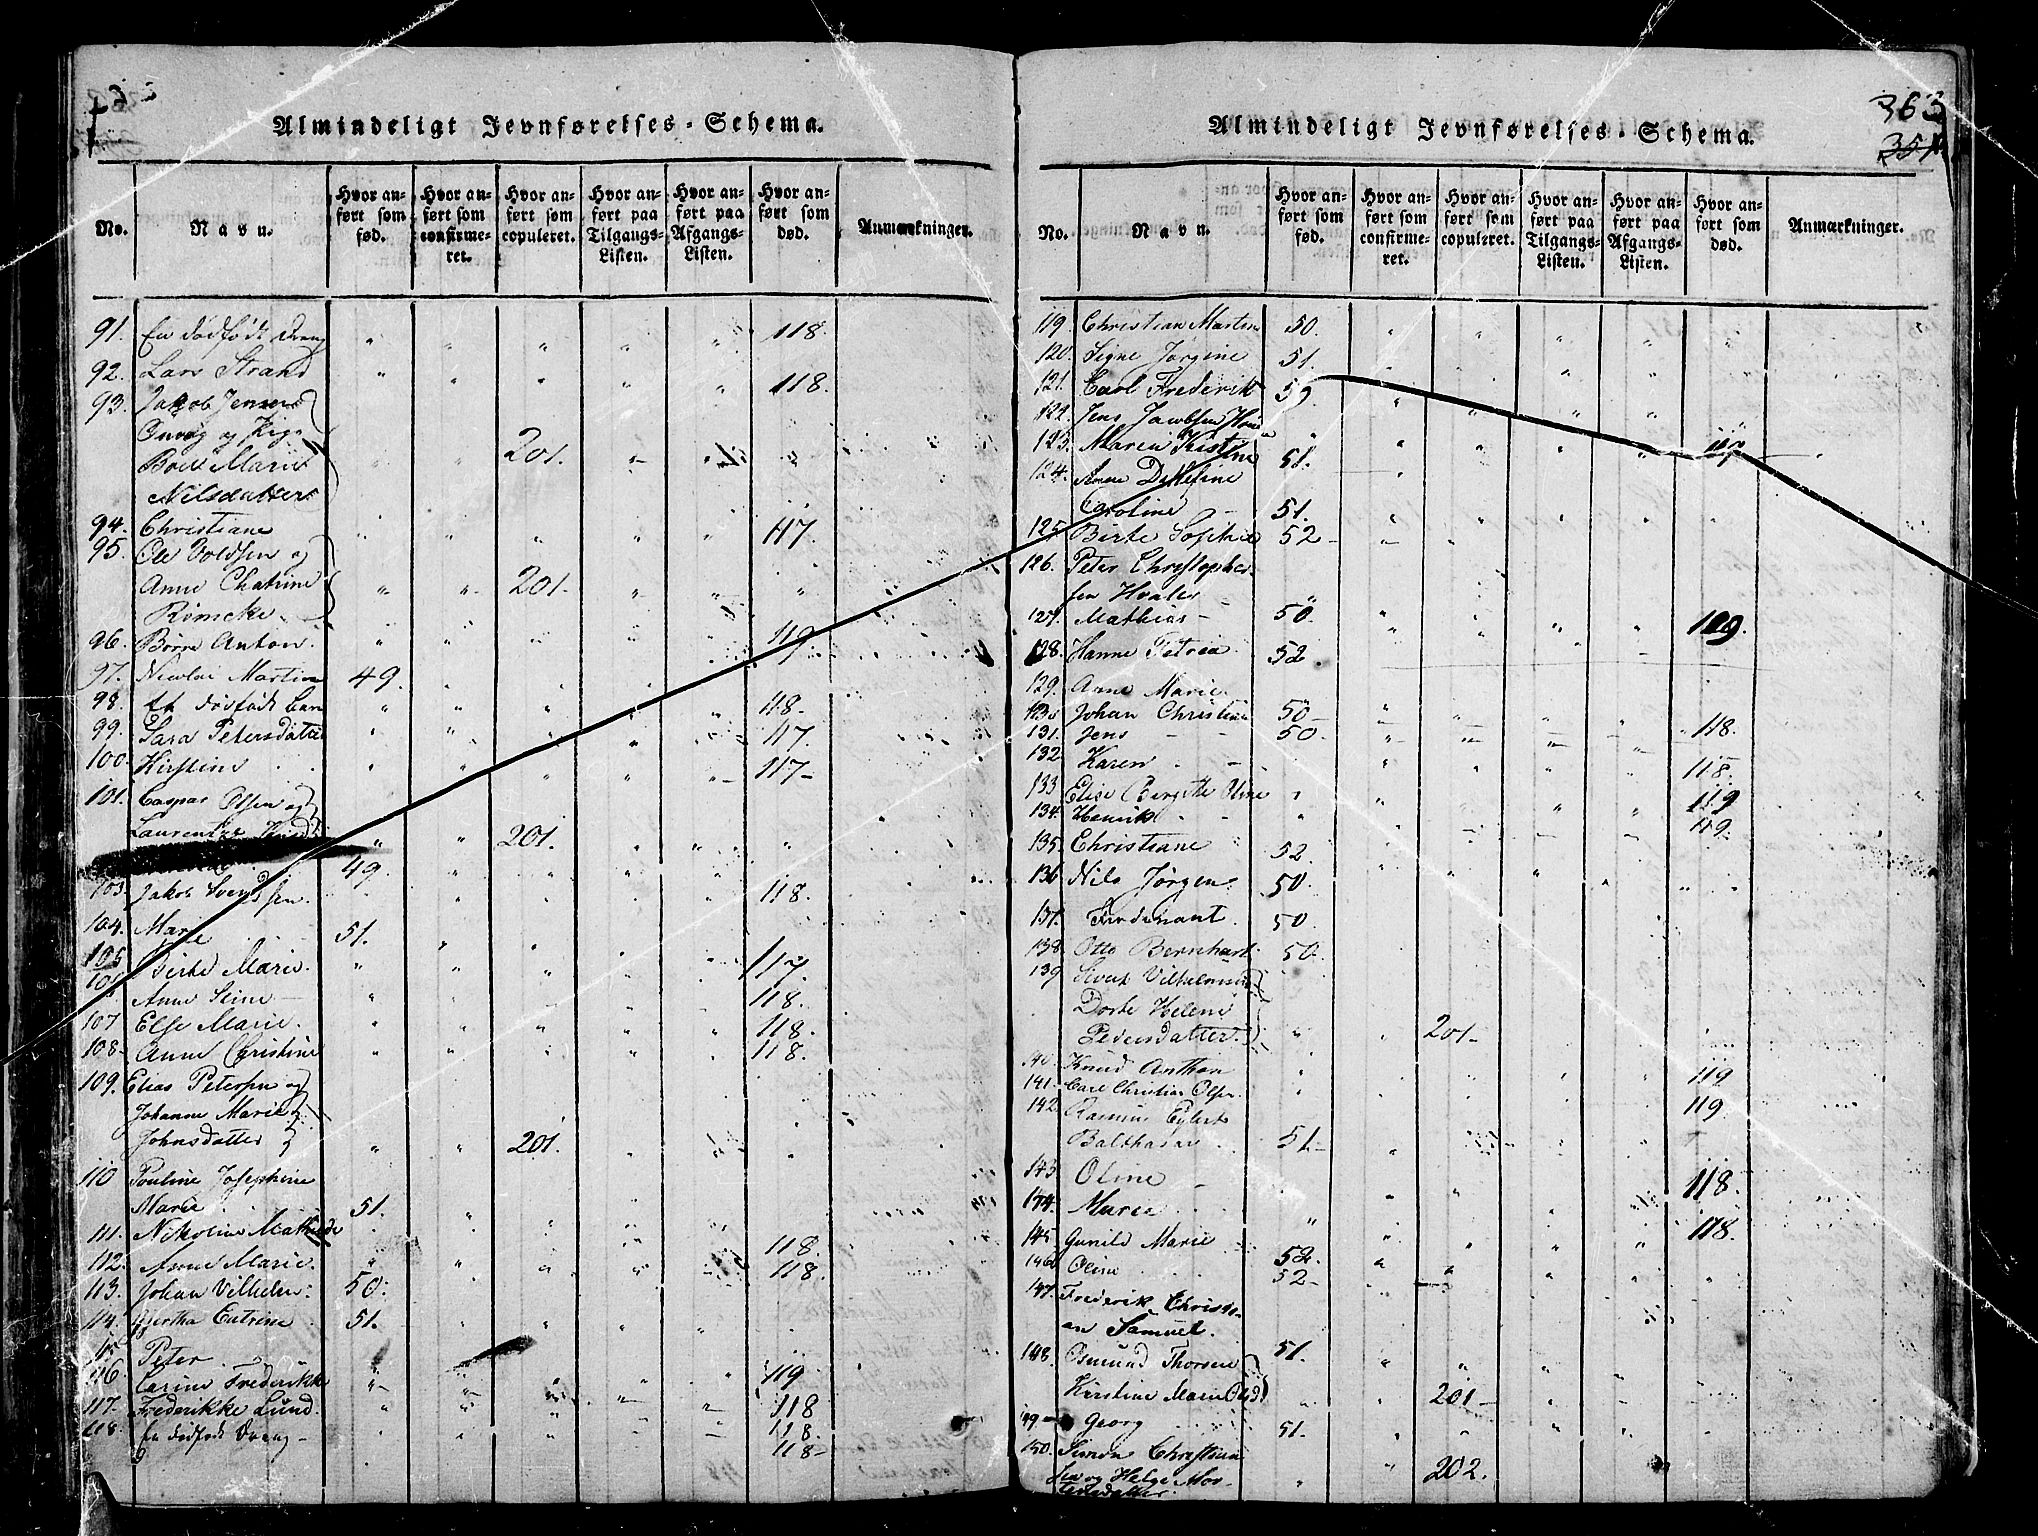 Almindeligt Jevnførelses-Schema.
No. Navn. Hvor anført som født. Hvor anført som confirmeret. Hvor anført som copuleret. Hvor anført paa Tilgangs-Listen. Hvor anført paa Afgangs-Listen. Hvor anført som død. Anmærkninger.
91. En dødfødt Dreng " " " " " 118.
92. Lars Strand " " " " " 118.
93. Jakob Jensen
og
Marie 201.
Nilsdatter
94. Christiane " " " " " 117.
95. Ole og
Anne Chatrine " " 201.
Römcke
96. Börre Anton. " " " " " 119.
97. Nicolai Martin 49.
98. Et dødfødt Barn " " " " " 118-
99. Sara Petersdatter " " " " " 117.
100. Kirstine " " " " " 117-
101. Caspar Olsen og
Laurentze " " 201.
49.
103 Jakob Svendsen. 118.
104. Marie 51.
105 Birte Marie. 117
106 Anne Sine 118.
107 Else Marie. 118.
108- Anne Christine 118.
109. Elias Petersen og
Johanne Marie
Johnsdatter " " 201.
110 Pouline Josephine
Marie 51.
111. Nikoline Mathilde 118.
112. Anne Marie. 118.
113. Johan Vilhelm. 50.
114. Bertha Catrine 51.
115 Peter 119
116. Carine Frederikke 118
117. Frederikke Lund. 118.
118. En dødfødt Dreng - 118-
363
351
Almindeligt Jevnførelses-Schema.
No. Navn. Hvor anført som født. Hvor anført som confirmeret. Hvor anført som copuleret. Hvor anført paa Tilgangs-Listen. Hvor anført paa Afgangs-Listen. Hvor anført som død. Anmærkninger.
119. Christian Martin 50.
120. Signe Jørgine 51.
121. Carl Frederik
122. Jens Jacobsen 117
123. Maren Kistine 51.
124. Anne
Caroline 51.
125. Birte Sophie 52-
126. Peter Christopher
sen Hvaler 109.
127. Mathias- 50.
128. Hanne Petrea 52
129. Anne Marie 118.
130 Johan Christian 50-
131. Jens 50.
132 Karen 118.
133 Elise Bergitte Oline 119
134. Henrik 119.
135. Christiane 52.
136 Nils Jørgen. 50.
137. Ferdinant. 50
138. Otto Bernhart 50.
139 Sivert Vilhelmsen
Dorte Helene
Pedersdatter. 201-
140. Knud Anthon 119
141. Carl Christian Olsen. 119
142 Rasmus Eylert
Balthasar 51-
143 Oline 118.
144. Marie 118.
145 Gunild Marie 52.
146 Oline 52-
147. Frederik Christi-
an Samuel. 51.
148. Osmund Thorsen
Kirstine Marie Olsd 201-
149- Georg 51.
150. Simon Christian
sen og Helge Mor 202.
tensdatter.